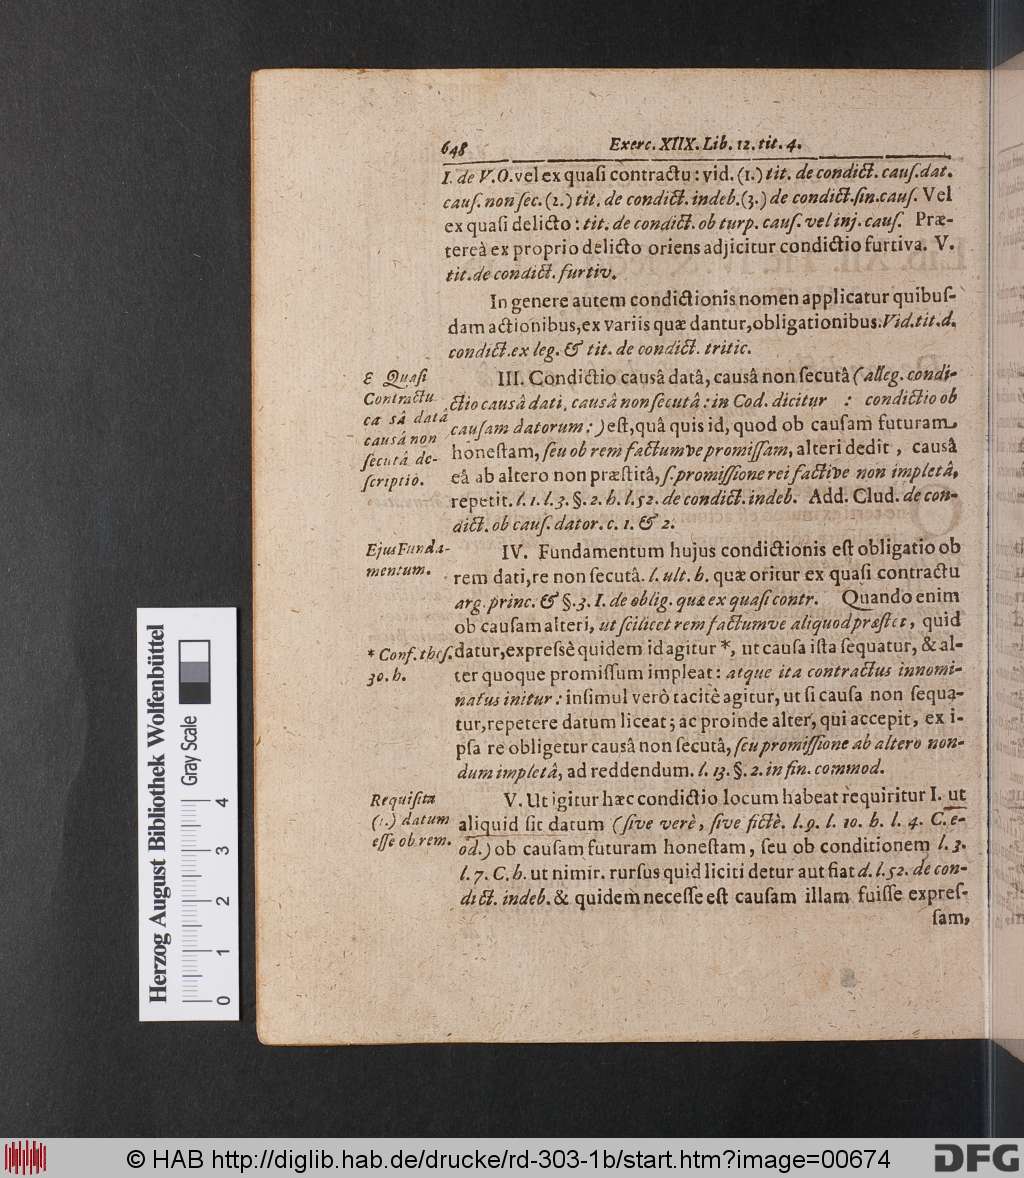 648 Exerc. XIIX. Lib. 12. tit. 4.
I. de V. O. vel ex quaſi contractu: vid. (1.) tit. de condict. cauſ. dat.
cauſ. non ſec. (2.) tit. de condict. indeb. (3.) de condict. ſin. cauſ. Vel
ex quaſi delicto: tit. de condict. ob turp. cauſ. vel inj. cauſ. Præ-
tereà ex proprio delicto oriens adjicitur condictio furtiva. V.
tit. de condict. furtiv.
In genere autem condictionis nomen applicatur quibuſ-
dam actionibus, ex variis quæ dantur, obligationibus. Vid. tit. d.
condict. ex leg. & tit. de condict. tritic.
Quaſi
Contractu
ca sâ datâ
causâ non
ſecutâ de-
ſcriptio.
III. Condictio causâ datâ, causâ non ſecutâ (alleg. condi-
ctio causâ dati, causâ non ſecutâ: in Cod. dicitur : condictio ob
cauſam datorum:) eſt, quâ quis id, quod ob cauſam futuram
honeſtam, ſeu ob rem factumve promiſſam, alteri dedit, causâ
eâ ab altero non præſtitâ, ſ. promiſſione rei factive non impletâ,
repetit. l. 1. l. 3. §. 2. h. l. 52. de condict. indeb. Add. Clud. de con-
dict. ob cauſ. dator. c. 1. & 2.
Ejus Funda-
mentum.
IV. Fundamentum hujus condictionis eſt obligatio ob
rem dati, re non ſecutâ. l. ult. h. quæ oritur ex quaſi contractu
arg. princ. & §. 3. I. de oblig. quæ ex quaſi contr. Quando enim
ob cauſam alteri, ut ſcilicet rem factumve aliquod præſtet, quid
* Conf. theſ.
30. h.
datur, expreſsè quidem id agitur *, ut cauſa iſta ſequatur, & al-
ter quoque promiſſum impleat: atque ita contractus innomi-
natus initur: inſimul verò tacitè agitur, ut ſi cauſa non ſequa-
tur, repetere datum liceat; ac proinde alter, qui accepit, ex i-
pſa re obligetur causâ non ſecutâ, ſeu promiſſione ab altero non-
dum impletâ, ad reddendum. l. 13. §. 2. in fin. commod.
Requiſita
(1.) datum
eſſe ob rem.
V. Ut igitur hæc condictio locum habeat requiritur I. ut
aliquid ſit datum (ſive verè, ſive fictè. l. 9. l. 10. h. l. 4. C. e-
od.) ob cauſam futuram honeſtam, ſeu ob conditionem l. 3.
l. 7. C. h. ut nimir. rurſus quid liciti detur aut fiat d. l. 52. de con-
dict. indeb. & quidem neceſſe eſt cauſam illam fuiſſe expreſ-
ſam,
Herzog August Bibliothek Wolfenbüttel
Gray Scale
0 1 2 3 4
© HAB http://diglib.hab.de/drucke/rd-303-1b/start.htm?image=00674
DFG